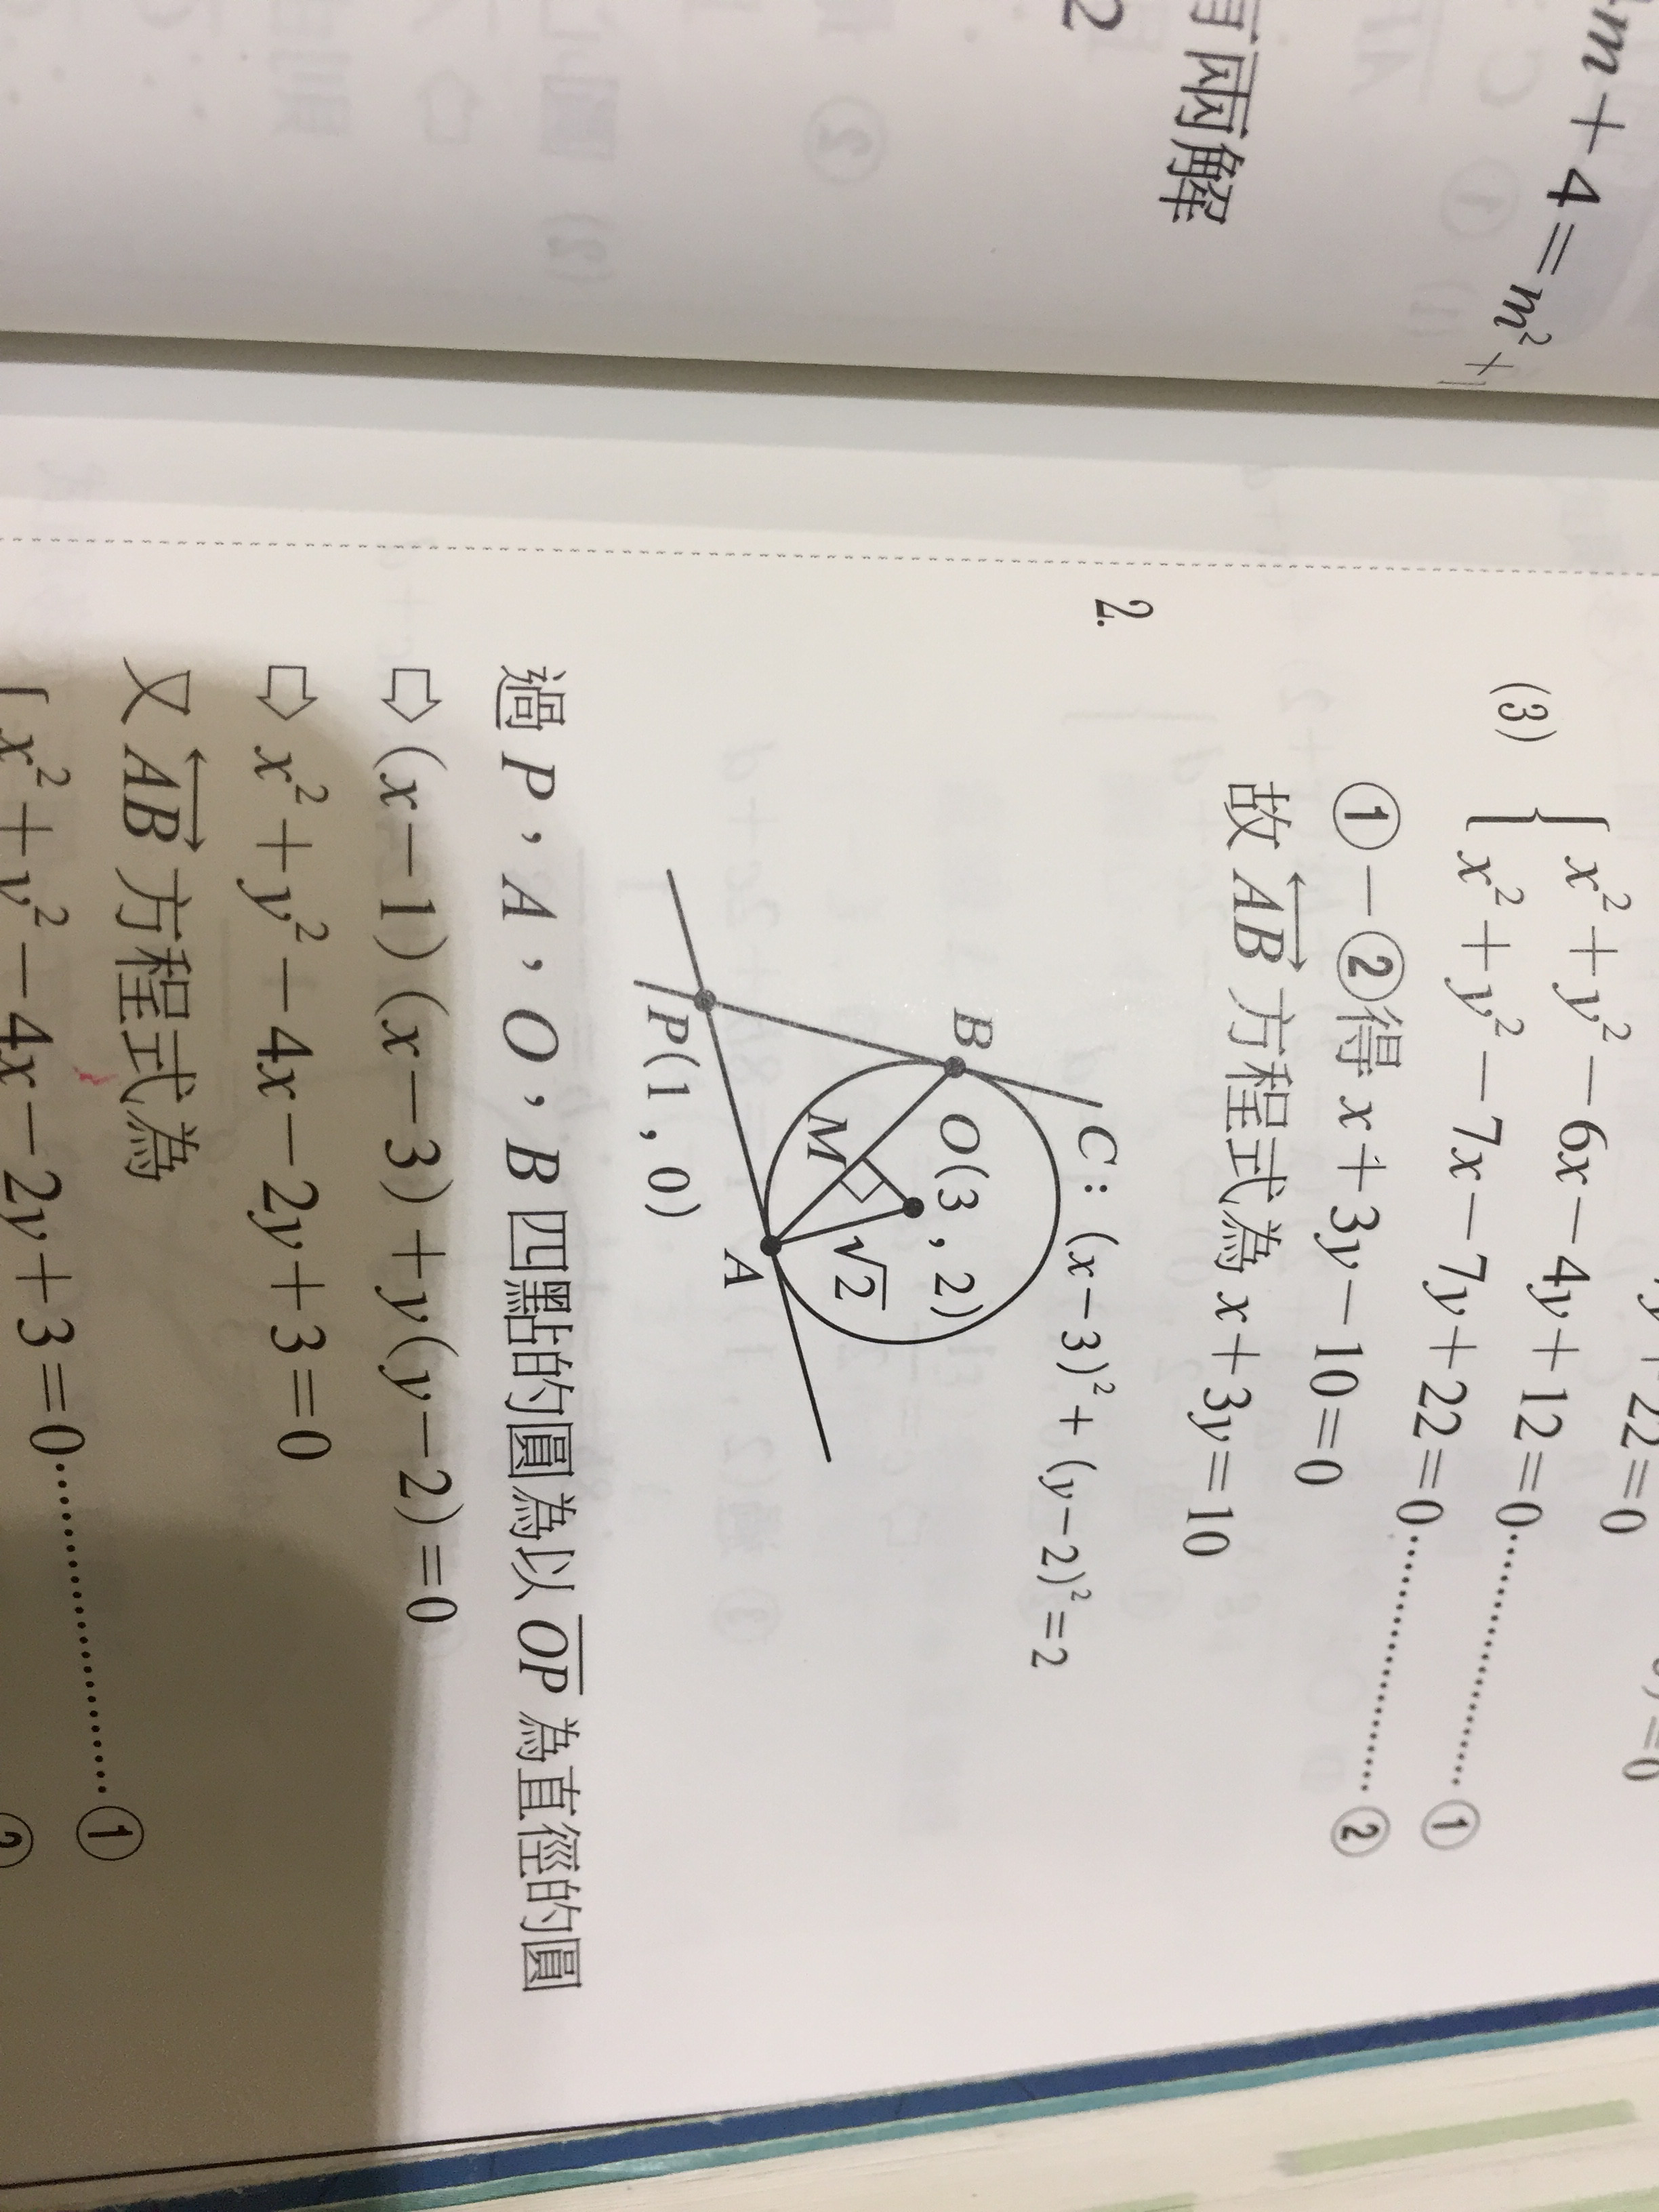 m+4=m²+
有兩解
2
y+22=0
(3) { x²+y²−6x−4y+12=0……………①
x²+y²−7x−7y+22=0……………②
①−②得 x+3y−10=0
故 AB 方程式為 x+3y=10
2.
C: (x−3)²+(y−2)²=2
B
O(3,2)
M
√2
A
P(1,0)
過 P,A,O,B 四點的圓為以 OP 為直徑的圓
⇨(x−1)(x−3)+y(y−2)=0
⇨x²+y²−4x−2y+3=0
又 AB 方程式為
{ x²+y²−4x−2y+3=0……………①
②